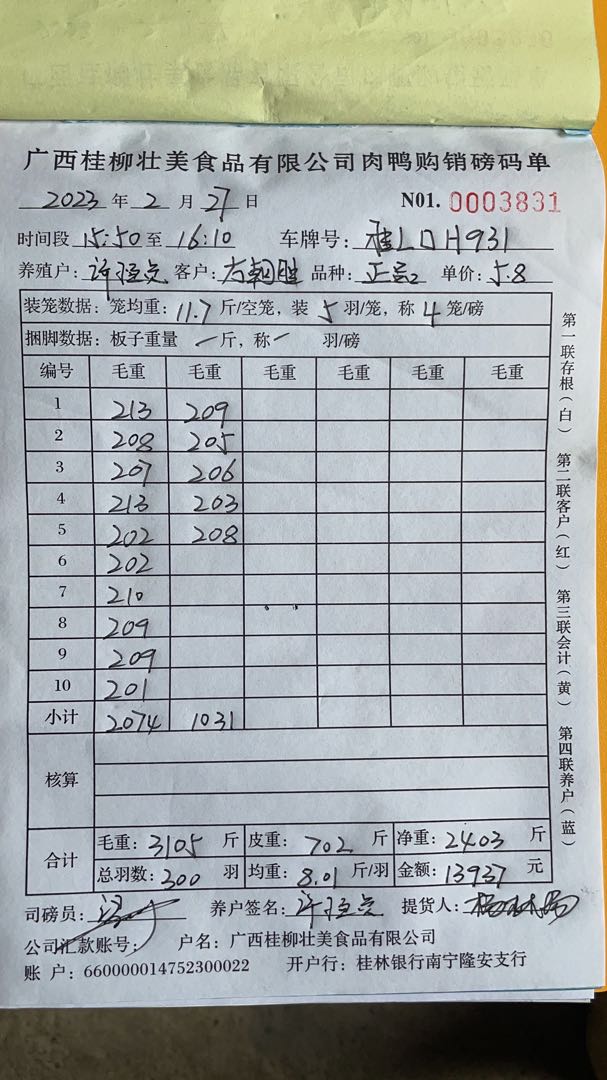 广西桂柳壮美食品有限公司肉鸭购销磅码单
2023 年 2 月 27 日 N01. 0003831
时间段 15:50 至 16:10 车牌号: 桂LDH931
养殖户: 许 客户: 方朝胜 品种: 正 单价: 5.8
装笼数据: 笼均重: 11.7 斤/空笼, 装 5 羽/笼, 称 4 笼/磅
捆脚数据: 板子重量 一 斤, 称 一 羽/磅
编号 毛重 毛重 毛重 毛重 毛重 毛重
1 213 209
2 208 205
3 207 206
4 213 203
5 202 208
6 202
7 210
8 209
9 209
10 201
小计 2074 1031
核算
合计 毛重: 3105 斤 皮重: 702 斤 净重: 2403 斤
总羽数: 300 羽 均重: 8.01 斤/羽 金额: 13937 元
司磅员: 养户签名: 许 提货人:
公司汇款账号: 户名: 广西桂柳壮美食品有限公司
账 户: 660000014752300022 开户行: 桂林银行南宁隆安支行
第一联存根(白) 第二联客户(红) 第三联会计(黄) 第四联养户(蓝)